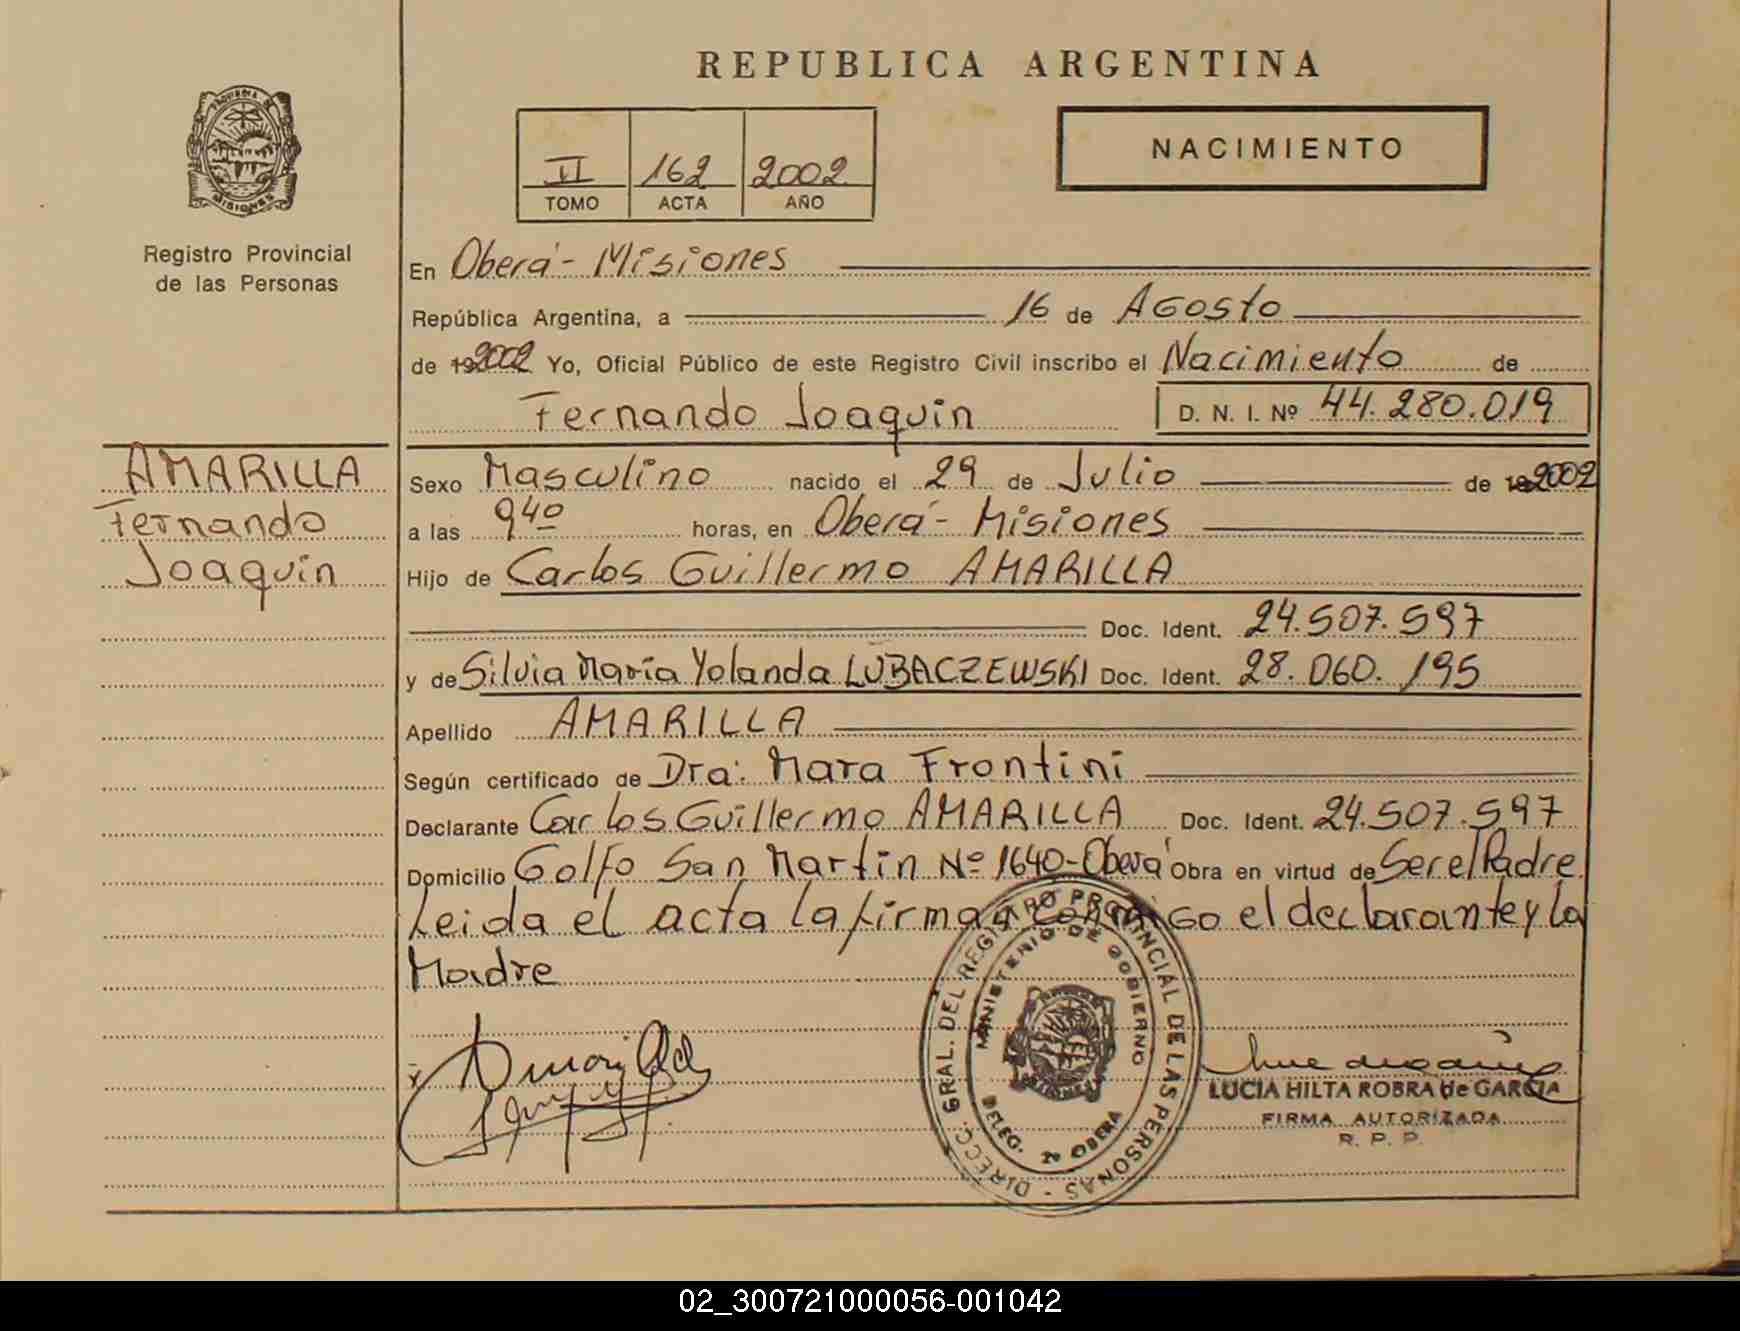 REPUBLICA ARGENTINA
NACIMIENTO
II 162 2002
TOMO ACTA AÑO
PROVINCIA DE MISIONES
Registro Provincial
de las Personas
En Oberá - Misiones
República Argentina, a 16 de Agosto
de 192002 Yo, Oficial Público de este Registro Civil inscribo el Nacimiento de
Fernando Joaquin D. N. I. Nº 44.280.019
AMARILLA
Fernando
Joaquin
Sexo Masculino nacido el 29 de Julio de 192002
a las 9 40 horas, en Oberá - Misiones
Hijo de Carlos Guillermo AMARILLA
Doc. Ident. 24.507.597
y de Silvia María Yolanda LUBACZEWSKI Doc. Ident. 28.060.195
Apellido AMARILLA
Según certificado de Dra: Mara Frontini
Declarante Carlos Guillermo AMARILLA Doc. Ident. 24.507.597
Domicilio Golfo San Martin Nº 1640-Oberá Obra en virtud de Ser el Padre.
Leida el acta la firman conmigo el declarante y la
Madre
DIRECC. GRAL. DEL REGISTRO PROVINCIAL DE LAS PERSONAS -
MINISTERIO DE GOBIERNO
DELEG. OBERA
LUCIA HILTA ROBRA de GARCIA
FIRMA AUTORIZADA
R. P. P.
02_300721000056-001042